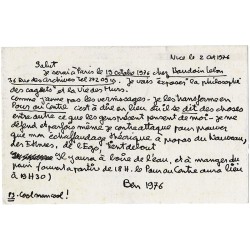 Nice le 2 Oct 1976
Salut
Je serai à Paris le 19 octobre 1976 chez Baudoin Lebon
36 Rue des Archives Tel 272 09 10 - Je vais exposer "la philosophie
des cageots" et la Vie des Murs.
Comme j'aime pas les vernissages - Je les transforme en
Pour ou Contre C'est à dire en lieu où il se dit des choses
entre autre ce que les gens pensent de moi - Je me
défend et parfois même je contre attaque pour prouver
que mon échaffaudage théorique à propos du Nouveau,
des Ethnies, de l'Ego, tient debout
Il y aura à boire de l'eau, et à manger du
pain
à partir de 18H. le Pour ou Contre aura lieu
à 19H30)
Ben 1976